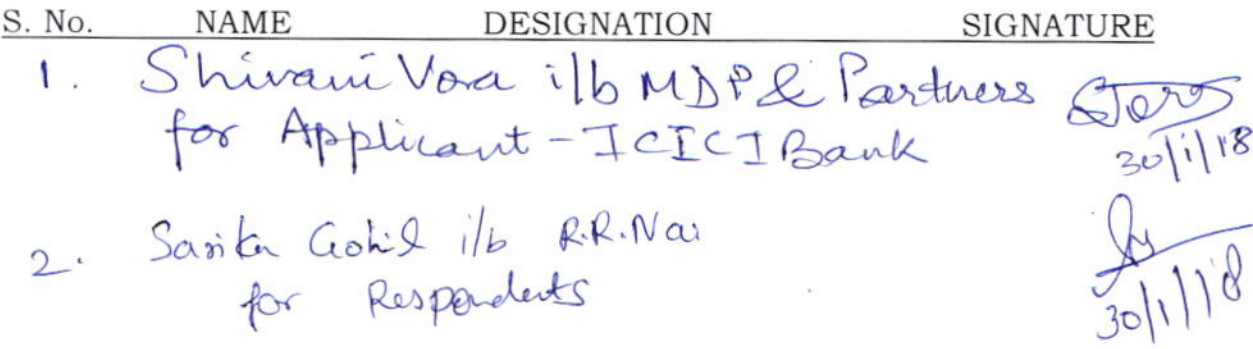 S. No. NAME DESIGNATION SIGNATURE
1. Shivani Vora i/b MDP & Partners
for Applicant - ICICI Bank
30/1/18
2. Sarika Gohil i/b R.R. Nai
for Respondents
30/1/18